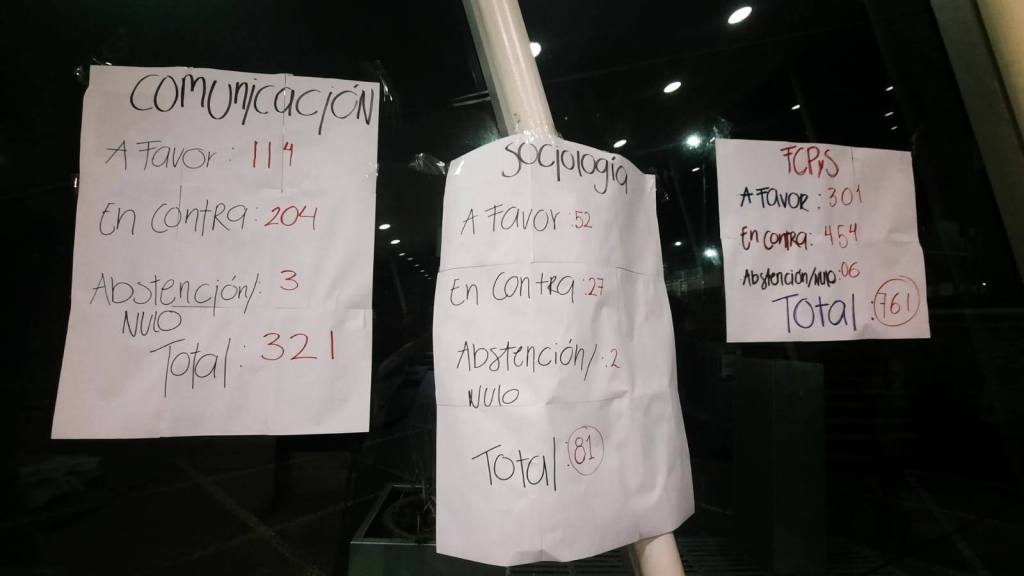 COMUNICACIÓN
A FAVOR: 114
EN CONTRA: 204
Abstención/: 3
NULO
Total: 321
Sociología
A FAVOR: 52
EN CONTRA: 27
Abstención/: 2
NULO
Total: 81
FCPyS
A FAVOR: 301
EN CONTRA: 454
Abstención/NULO: 06
Total: 761